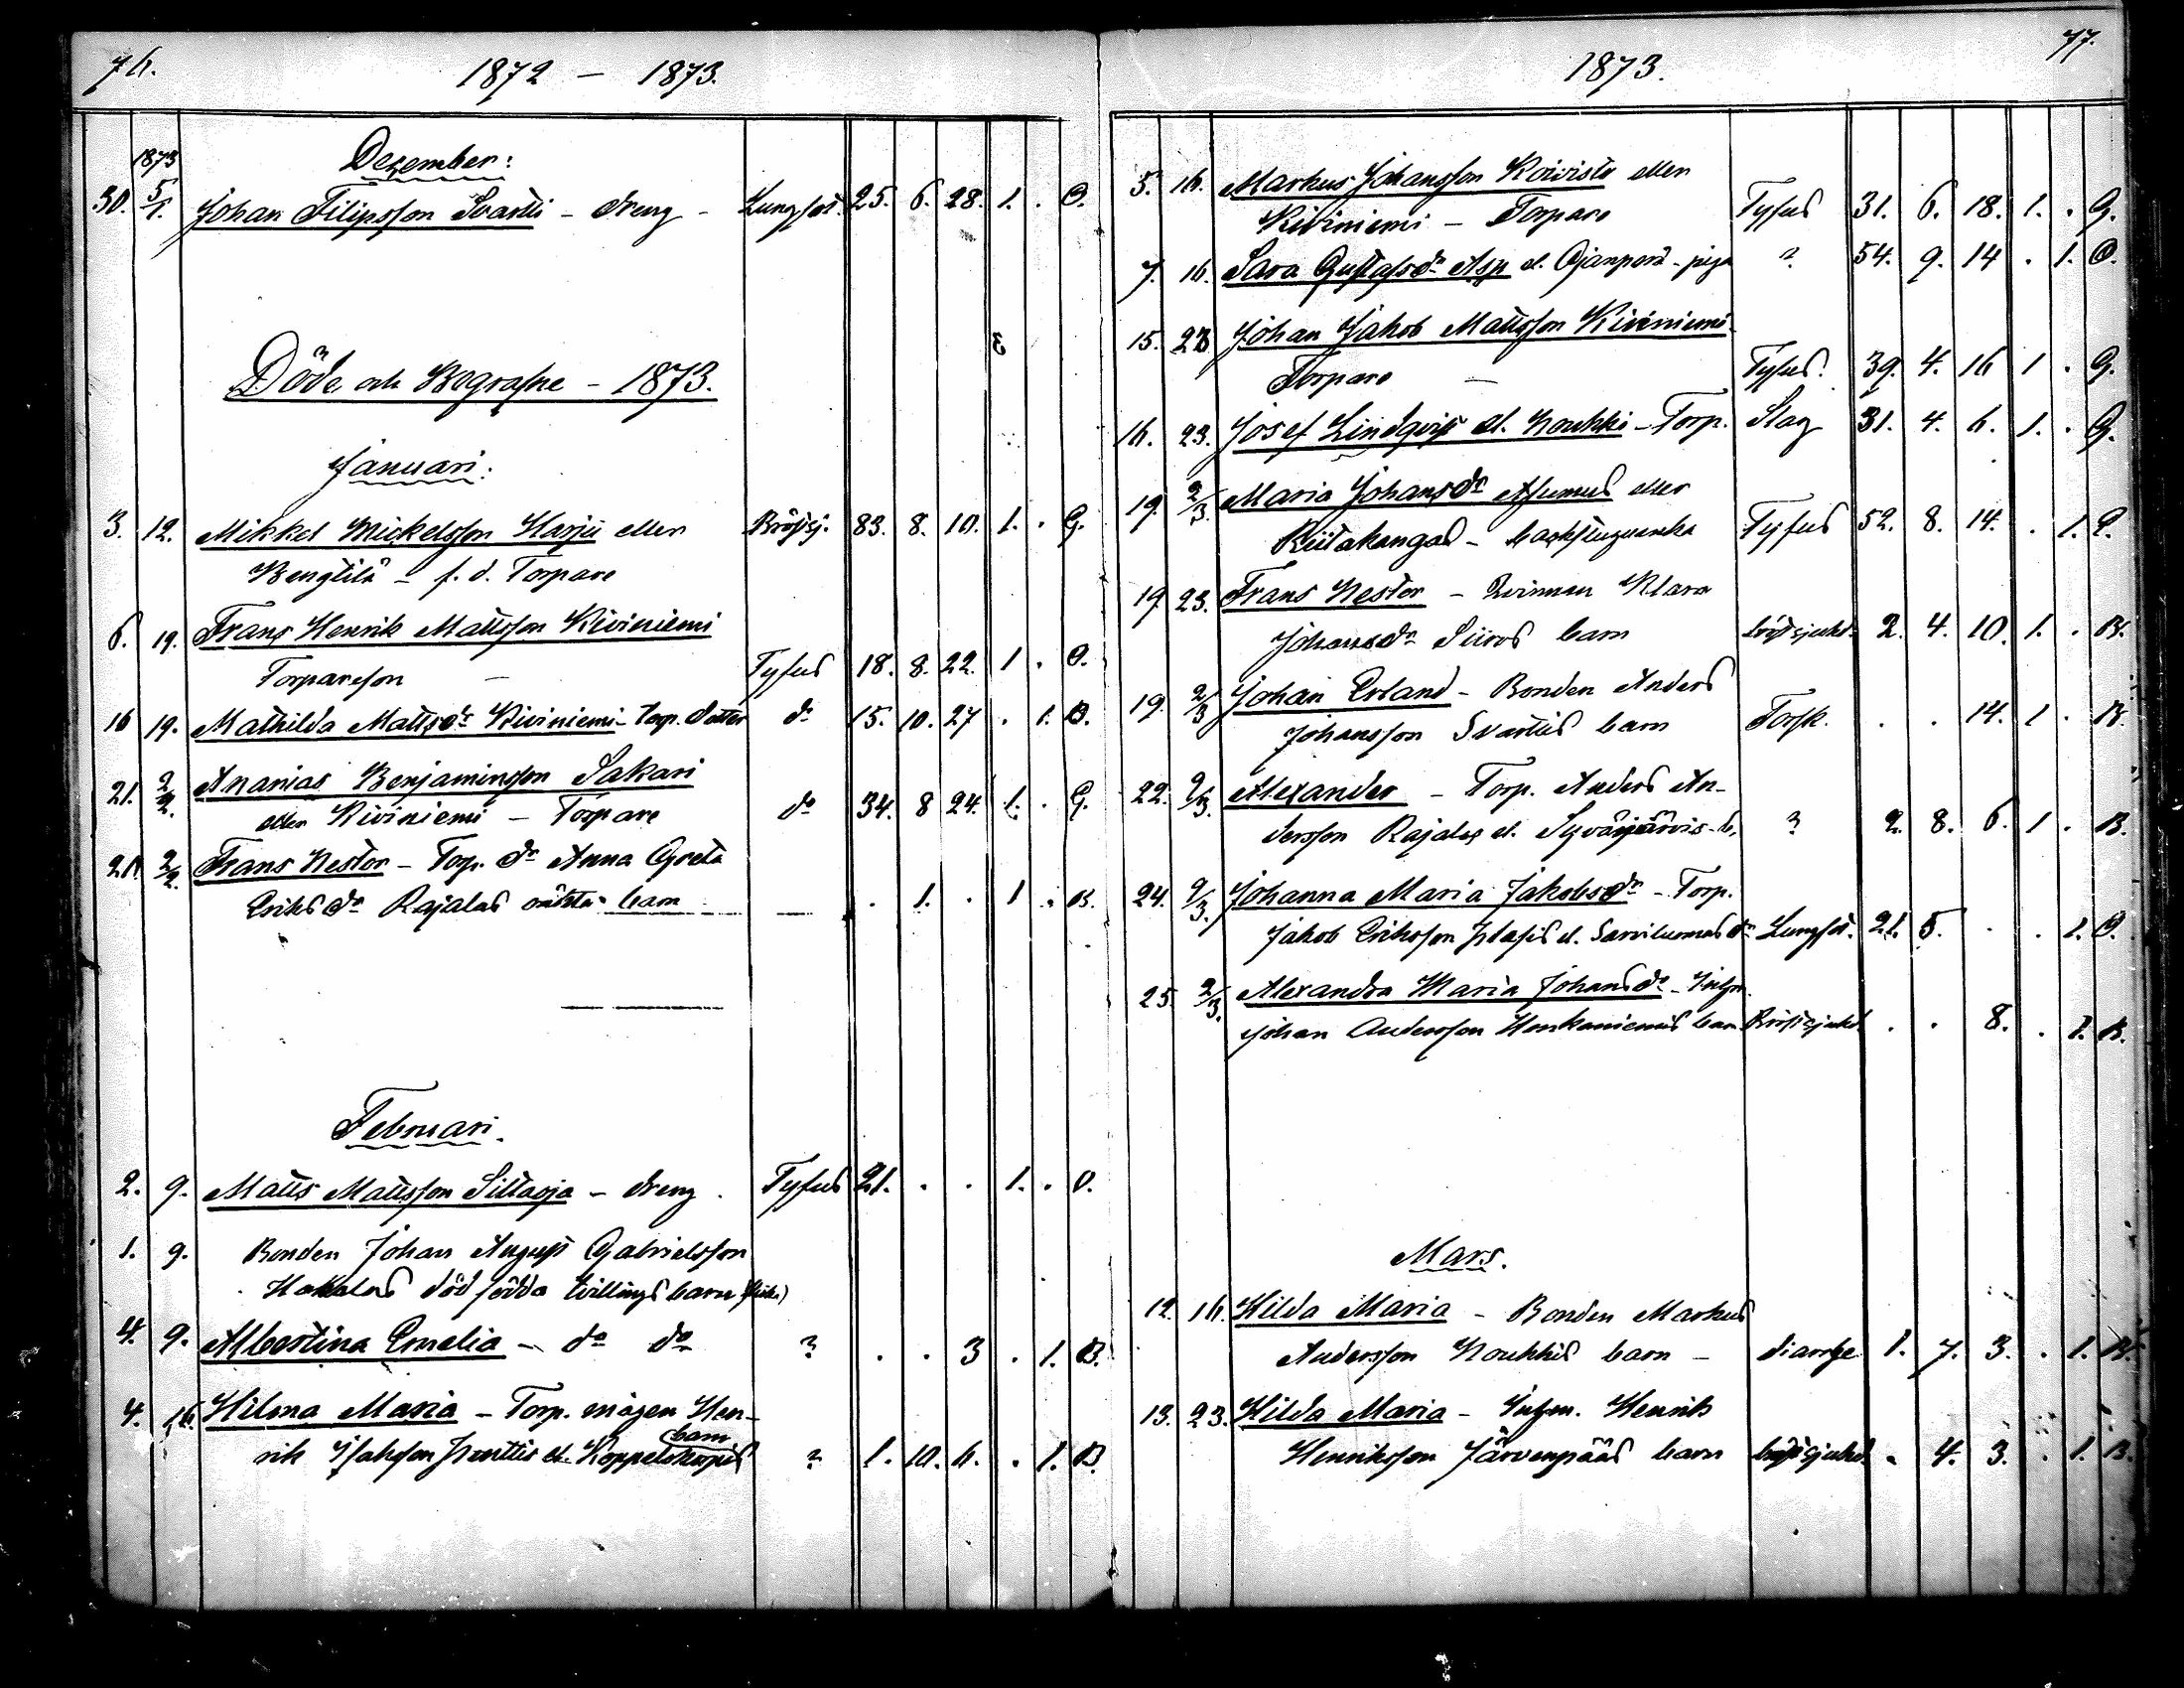 76.
1872 – 1873.
1873
Dezember:
30. 5/1. Johan Filipsson Svartti – dreng – Lungsot. 25. 6. 28. 1. . O.
Döde och Begrafne – 1873.
Januari:
3. 12. Mikkel Mickelsson Harju eller Bröstsj. 83. 8. 10. 1. . G.
Bengtilä – f. d. Torpare
6. 19. Frans Henrik Mattsson Kiviniemi
Torpareson – Tyfus 18. 8. 22. 1 . O.
16 19. Mathilda Mattsdr Kiviniemi – Torp. dotter do 15. 10. 27 . 1. O.
21. 2/2. Ananias Benjaminsson Sakari
eller Kiviniemi – Torpare do 34. 8 24. 1. . G.
21 2/2. Frans Nestor – Torp. dr Anna Greta
Eriksdr Rajalas oäkta barn — . 1. . 1 . B.
Februari.
2. 9. Matts Mattsson Siltaoja – dreng . Tyfus 21. . . 1. . O.
1. 9. Bonden Johan August Gabrielsson
Hakalas död födda tvillings barn
4. 9. Albertina Emelia – do do ? . . 3 . 1. B.
4. 16. Hilma Maria – Torp. mågen Hen-
barn
rik Isaksson el. Koppeloharjus ? 1. 10. 6. . 1. B.
1873.
77.
5. 16. Markus Johansson Koivisto eller
Kiviniemi – Torpare Tyfus 31. 6. 18. 1. . G.
7. 16. Sara Gustafsdr Asp el. Ojanperä – piga ? 54. 9. 14 . 1. O.
15. 23 Johan Jakob Mattsson Kiviniemi –
Torpare – Tyfus. 39. 4. 16 1 . G.
16. 23. Josef Lindqvist el. Noukki – Torp. Slag 31. 4. 6. 1. . G.
19. 2/3. Maria Johansdr Asumus eller
Riitakangas – backstuguenka Tyfus 52. 8. 14. . 1. E.
19. 23. Frans Nestor – Qvinnan Klara
Johansdr Siiros barn bröstsjukd. 2. 4. 10. 1. . B.
19. 2/3 Johan Erland – Bonden Anders
Johansson Svarttis barn Torsk. . . 14. 1 . B.
22. 2/3. Alexander – Torp. Anders An-
dersson Rajalas el. Syväjärvis b. ? 2. 8. 6. 1 . B.
24. 2/3. Johanna Maria Jakobsdr – Torp.
Jakob Eriksson el. Sarviluomas dr Lungsot. 21. 5. . . 1. O.
25. 2/3. Alexandra Maria Johansdr – Inhm.
Johan Andersson Honkaniemis barn Bröstsjukd . . 8. . 1. B.
Mars.
12. 16. Hilda Maria – Bonden Markus
Andersson Noukkis barn – diarrhe 1. 7. 3. . 1. B.
13. 23. Hilda Maria – Inhm. Henrik
Henriksson Järvenpääs barn bröstsjukd. . 4. 3. . 1. B.